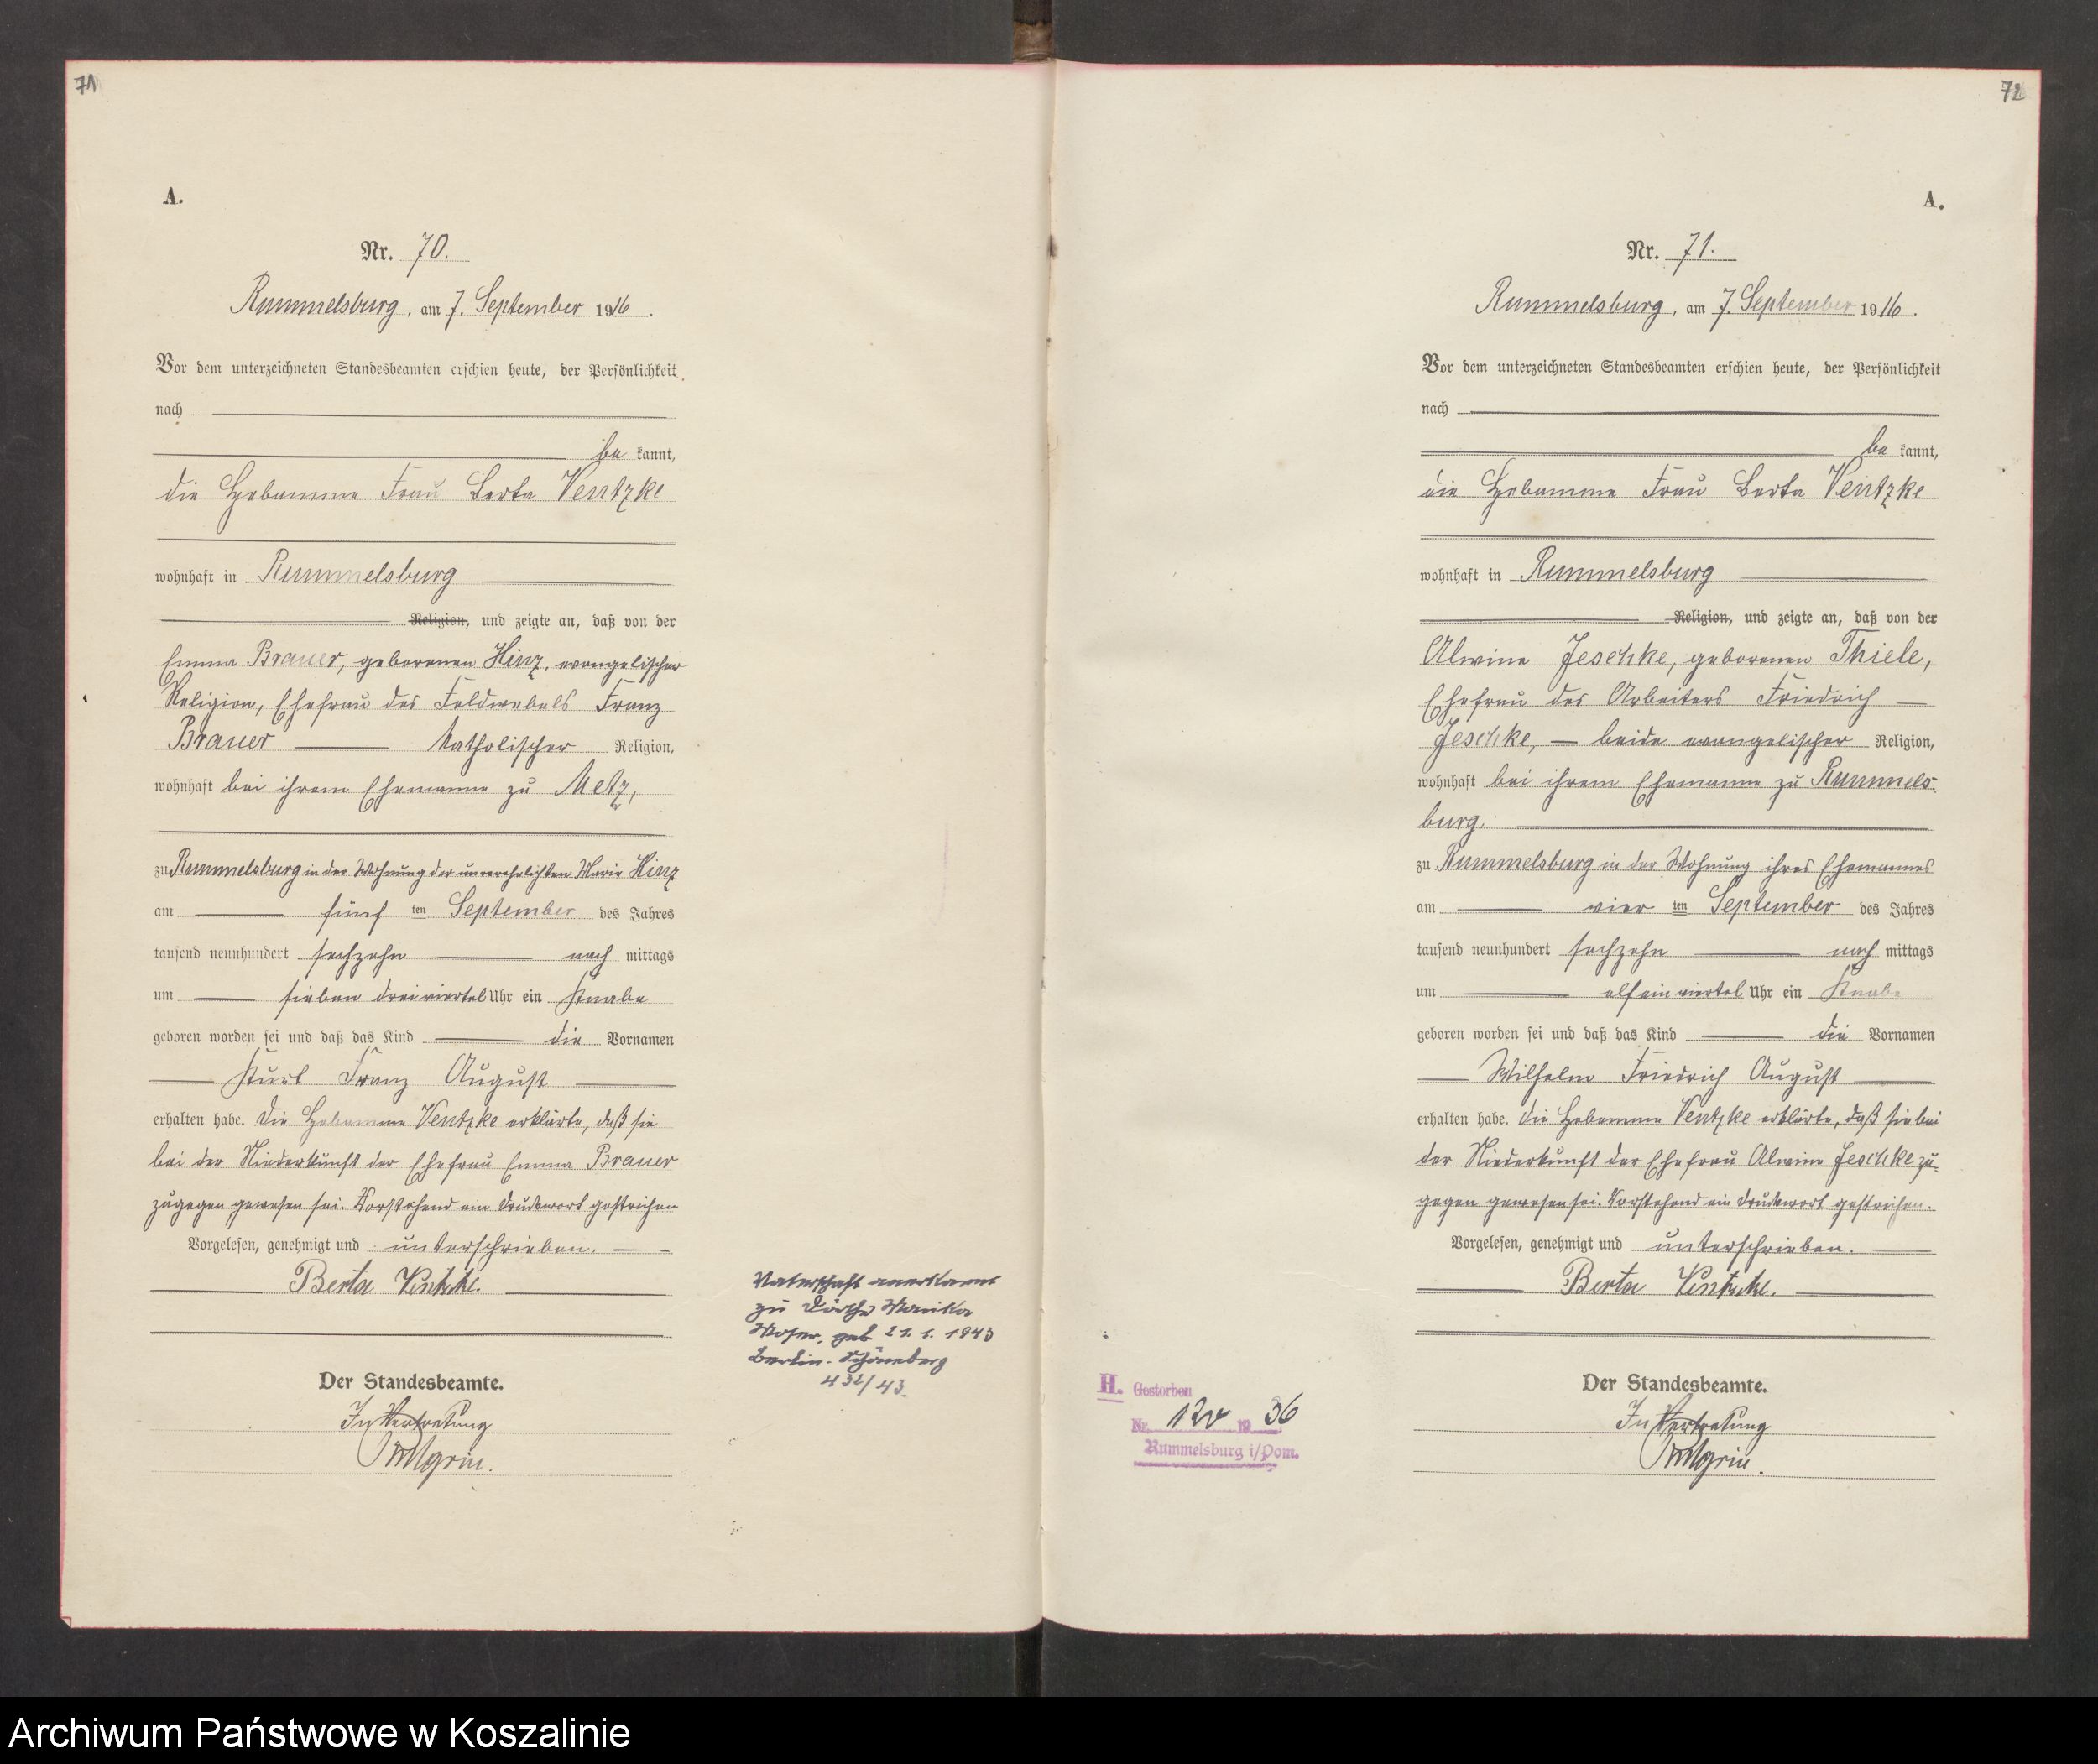 71
A.
Nr. 70.
Rummelsburg, am 7. September 1916.
Vor dem unterzeichneten Standesbeamten erschien heute, der Persönlichkeit
nach
be kannt,
die Hebamme Frau Berta Ventzke
wohnhaft in Rummelsburg
Religion, und zeigte an, daß von der
Emma Brauer, geborenen Hinz, evangelischer
Religion, Ehefrau des Feldwebels Franz
Brauer katholischer Religion,
wohnhaft bei ihrem Ehemanne zu Metz,
zu Rummelsburg in der Wohnung der unverehelichten Marie Hinz
am fünf ten September des Jahres
tausend neunhundert sechzehn nach mittags
um sieben dreiviertel Uhr ein Knabe
geboren worden sei und daß das Kind die Vornamen
Kurt Franz August
erhalten habe. Die Hebamme Ventzke erklärte, daß sie
bei der Niederkunft der Ehefrau Emma Brauer
zugegen gewesen sei. Vorstehend ein Druckwort gestrichen
Vorgelesen, genehmigt und unterschrieben.
Berta Ventzke.
Der Standesbeamte.
In Vertretung
Vaterschaft anerkannt
zu Dörthe Monika
Moser, geb. 21. 1. 1943
Berlin-Schöneberg
432/43.
72
A.
Nr. 71.
Rummelsburg, am 7. September 1916.
Vor dem unterzeichneten Standesbeamten erschien heute, der Persönlichkeit
nach
be kannt,
die Hebamme Frau Berta Ventzke
wohnhaft in Rummelsburg
Religion, und zeigte an, daß von der
Alwine Jeschke, geborenen Thiele,
Ehefrau des Arbeiters Friedrich
Jeschke, — beide evangelischer Religion,
wohnhaft bei ihrem Ehemanne zu Rummels-
burg.
zu Rummelsburg in der Wohnung ihres Ehemannes
am vier ten September des Jahres
tausend neunhundert sechzehn nach mittags
um elf ein viertel Uhr ein Knabe
geboren worden sei und daß das Kind die Vornamen
Wilhelm Friedrich August
erhalten habe. Die Hebamme Ventzke erklärte, daß sie bei
der Niederkunft der Ehefrau Alwine Jeschke zu-
gegen gewesen sei. Vorstehend ein Druckwort gestrichen.
Vorgelesen, genehmigt und unterschrieben.
Berta Ventzke.
Der Standesbeamte.
In Vertretung
H. Gestorben
Nr. 19 36
Rummelsburg i/Pom.
Archiwum Państwowe w Koszalinie